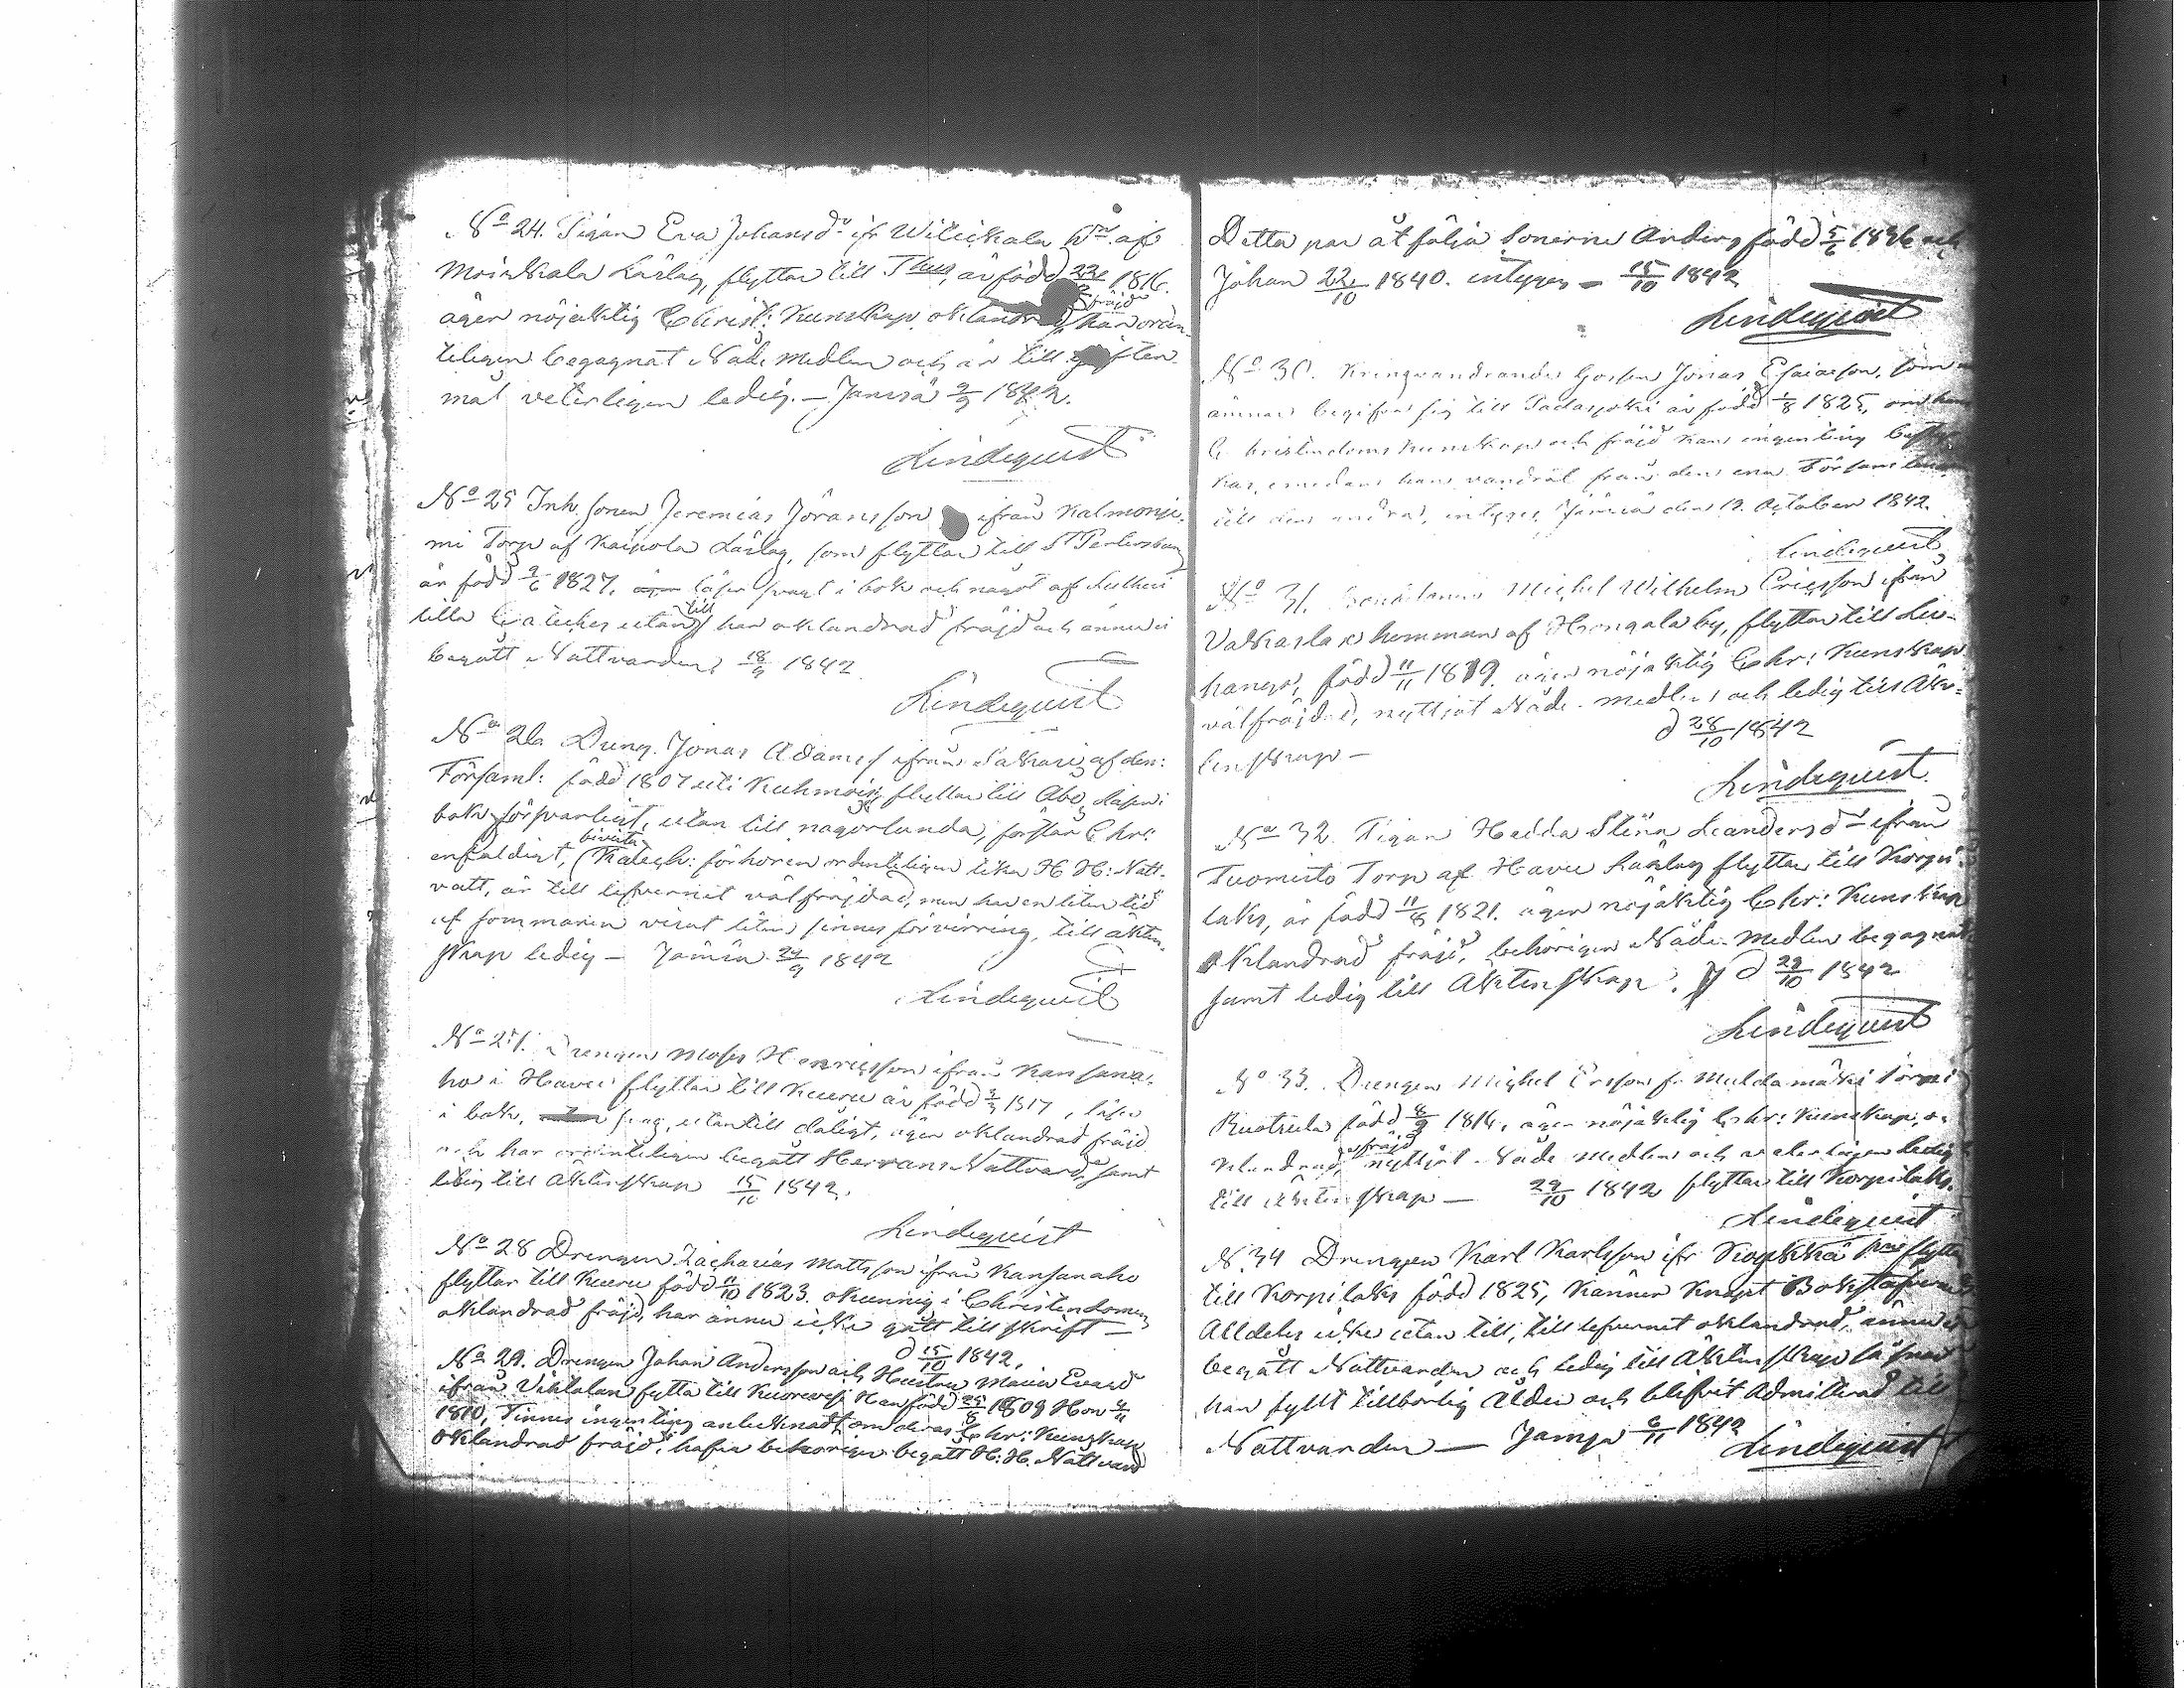 No 24. Pigan Eva Johansdr ifr Wilickala hn af
Moinkala Låslag, flyttar till Thus, är född 22 1816.
äger nöjaktig Christ: Kunskap, oklandrad fräjd har orden-
teligen begagnat Nåde medlen och är till giften-
mål veterligen ledig. — Jamsä 9/9 1842.
Lindequist
No 25 Inh. sonen Jeremias Jöransson ifrån Kalmonje-
mi Torp af Kaipola Låslag, som flyttar till St Petersburg
är född 9/6 1827, läser svagt i bok och något af Lutheri
lilla Cateches utantill har oklandrad fräjd och ännu ei
begått Nattvarden 18/9 1842
Lindequist
No 26 Dreng. Jonas Adamss ifrån af den:
Församl: född 1807 uti Kuhmois, flyttar till Åbo, läser i
bok försvarligt, utan till någorlunda, förstår Chr:
enfaldigt, bivistat Katech: förhören ordenteligen lika H. H: Natt-
vatt, är till lefvernet välfräjdad, men har en liten tid
af sommaren visat liten sinnes förvirring, till äkten-
skap ledig — Jämsä 24/9 1842
Lindequist
No 27. Drengen Moses Henricsson ifrån Kansana-
ho i Havu flyttar till Keuru är född 1817, läser
i bok, svag, utantill dåligt, äger oklandrad fräjd
och har ordenteligen begått Herrans Nattvard, samt
ledig till Äktenskap 15/10 1842.
Lindequist
No 28 Drengen Zacharias Mattsson ifrån Kansanaho
flyttar till Keuru född 11/10 1823. okunnig i Christendomen,
oklandrad fräjd, har ännu icke gått till skrift —
d 15/10 1842.
No 29. Drengen Johan Andersson och Hustru Maria Evasd
ifrån Vihlalan fytta till Kuorevesi Han född 1809 Hon
1810, Finnes ingenting anteknadt om deras Chr: Kunskap
oklandrad fräjd, hafva behörigen begått H: H. Nattvard
Detta par åtfölja Sonerne Anders född 5/6 1836 och
Johan 22/10 1840. intygas — 15/10 1842
Lindequist
No 30. Kringvandrande Gossen Jonas Esaiasson, som
ämnar begifva sig till Padasjoki är född 1/8 1825, om hans
Christendoms kunskap och fräjd kan ingenting
emedan han vandrat från den ena Församling
till den andra, intygas, Jämsä den 17. October 1842.
Lindequist
No 31. Michel Wilhelm Ericsson ifrån
hemman af Hongala by, flyttar till Leu-
hangs, född 11/11 1819. äger nöjaktig Chr: Kunskap
välfräjdad, nyttjat Nåde-medlen och ledig till Äk-
tenskap —
d 28/10 1842
Lindequist
No 32. Pigan Hedda Stina Leandersdr ifrån
Tuomisto Torp af Havu Låslag flyttar till Korpi-
laks, är född 11/8 1821. äger nöjaktig Chr: Kunskap
oklandrad fräjd, behörigen Nåde-medlen begagnat
samt ledig till Äktenskap. d 29/10 1842
Lindequist
No 33. Drengen Michel Ersson fr Muldamäki Torp i
Ruotsula född 8/9 1816, äger nöjaktig Chr: Kunskap, o-
klandrad fräjd nyttjat Nåde medlen och veterligen ledig
till äktenskap — 29/10 1842 flyttar till Korpilaks.
Lindequist
N. 34 Drengen Karl Karlsson ifr flytta
till Korpilaks född 1825, känner knapt Bokstäfverne
Alldeles icke utan till, till lefvernet oklandrad, ännu ei
begått Nattvarden och ledig till Äktenskap så snart
han fyllt tillbörlig ålder och blifvit Admitterad till
Nattvarden — Jamsä 6/11 1842
Lindequist